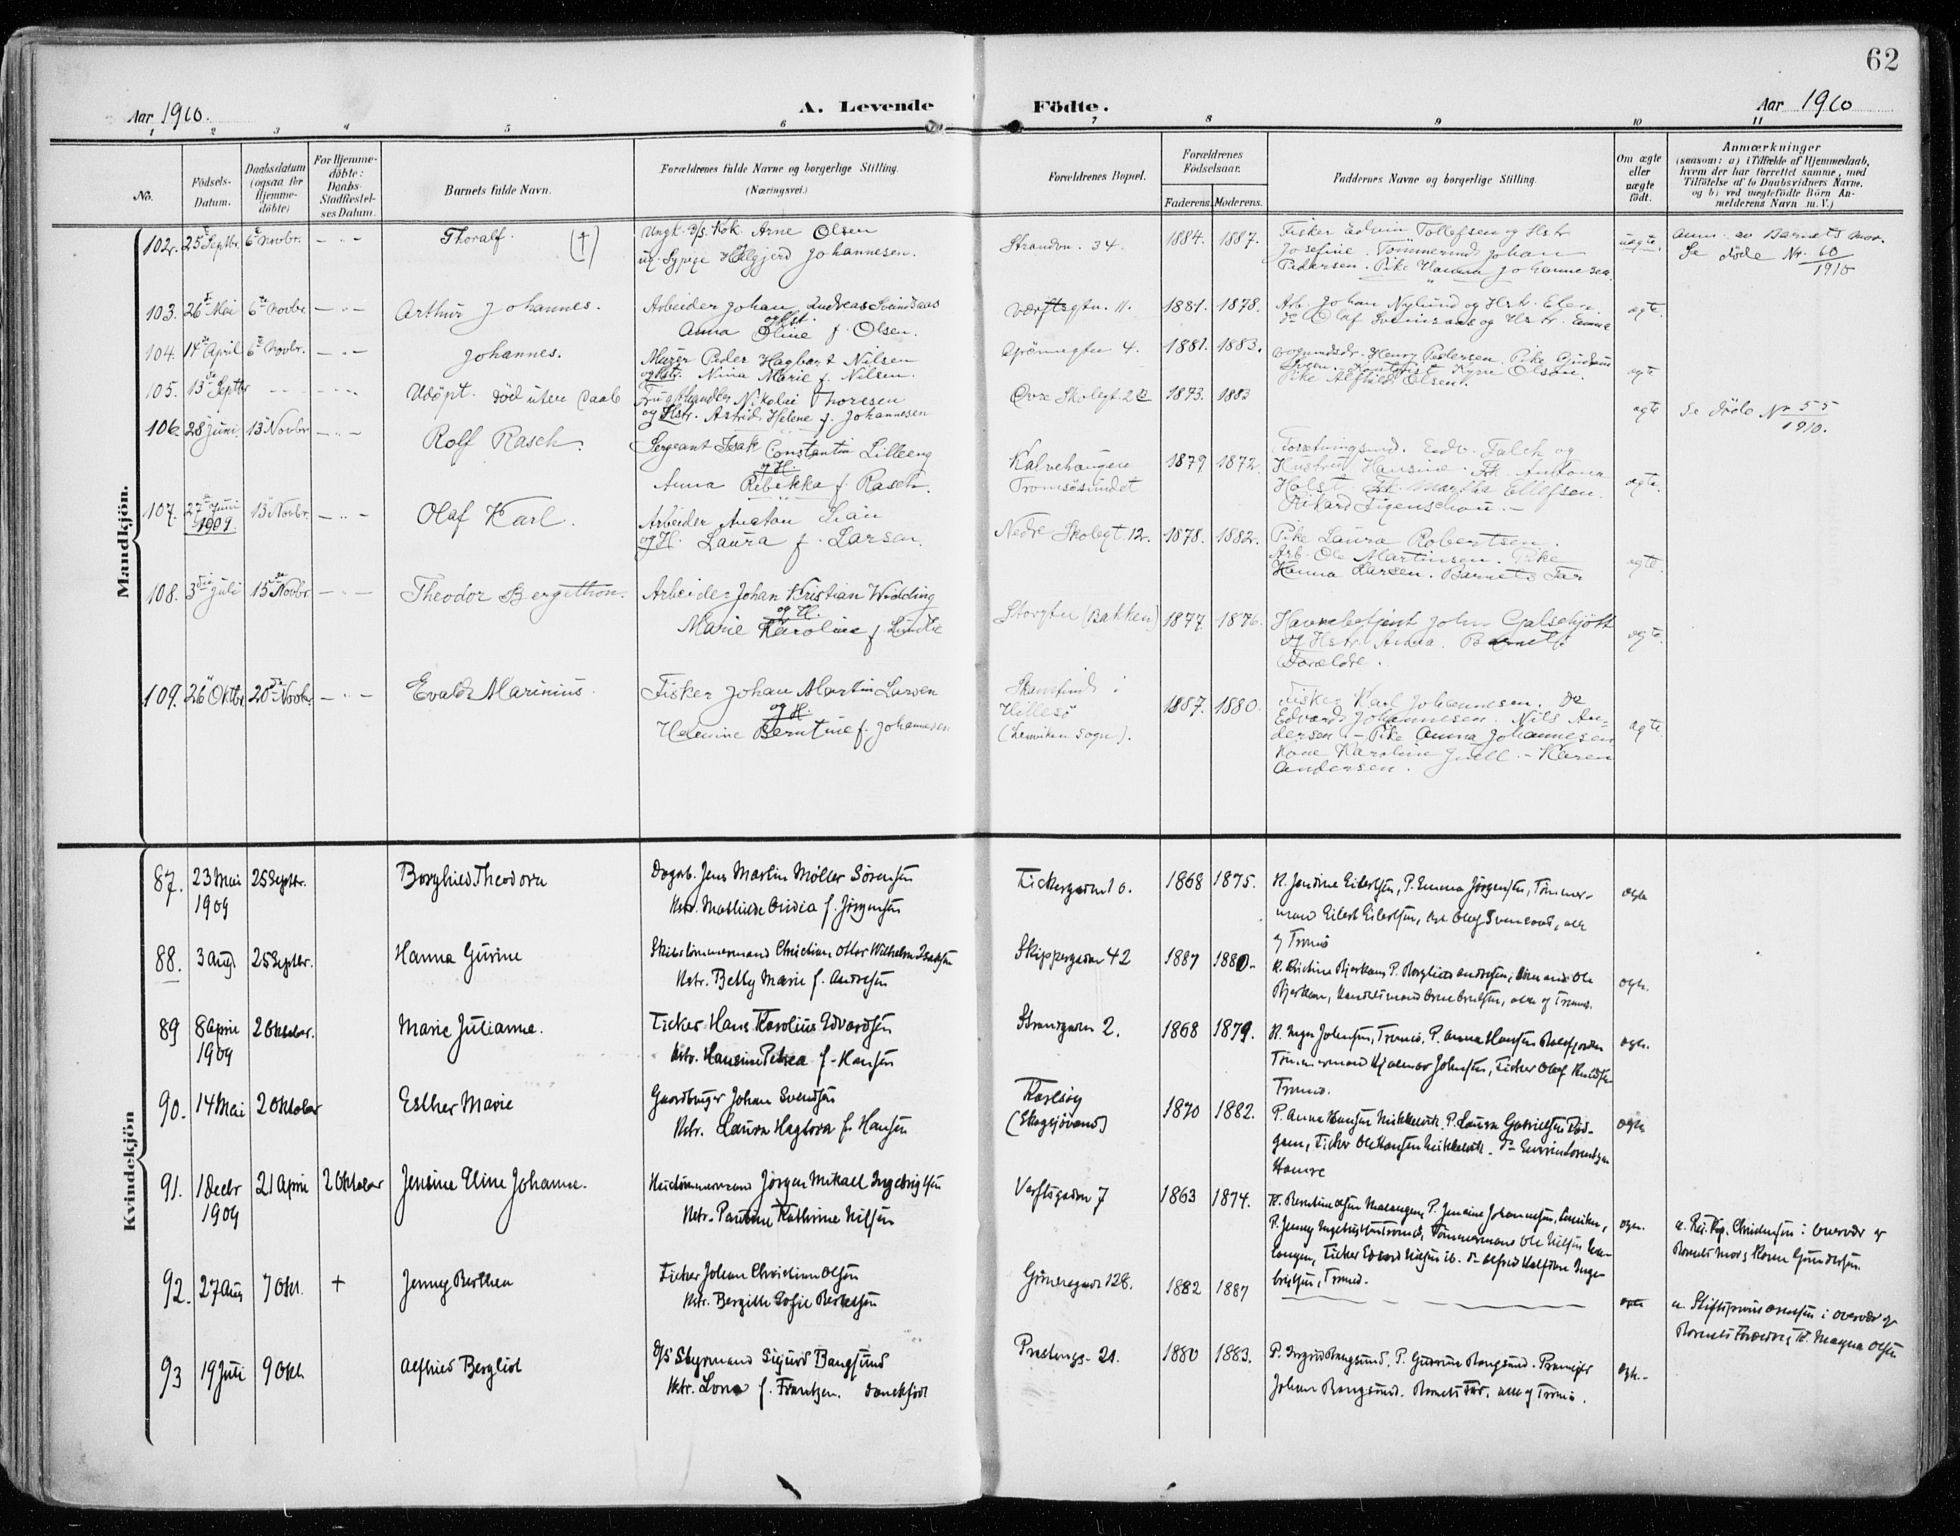 62
Aar 1910.
A. Levende
Födte.
Aar 1910
1 2 3 4 5 6 7 8 9 10 11
No.
Födsels-
Datum.
Daabsdatum
(ogsaa for
Hjemme-
döbte)
For Hjemme-
döbte:
Daabs-
Stadfæstel-
ses Datum.
Barnets fulde Navn.
Forældrenes fulde Navne og borgerlige Stilling.
(Næringsvei.)
Forældrenes Bopæl.
Forældrenes
Födselsaar.
Faderens. Moderens.
Faddernes Navne og borgerlige Stilling.
Om ægte
eller
uægte
födt.
Anmærkninger
(saasom: a) i Tilfælde af Hjemmedaab,
hvem der har forrettet samme, med
Tilföielse af to Daabsvidners Navne,
og b) ved uægtefödte Börn An-
melderens Navn m. V.)
Mandkjön.
102. 25 Septbr. 6 Novbr. — " — Thoralf. (†) Ungk. D/S. Kok Arne Olsen
ug. Sypige Helgjerd Johannesen.
Strandvn. 34. 1884. 1887.
Fisker Edvin Tollefsen og Hstr
Josefine. Tömmermd Johan
Pedersen. Pike Hanna Johannesen
uægte.
Anm. av Barnets mor.
Se döde Nr. 60
1910
103. 26 Mai 6 Novbr. — " — Arthur Johannes. Arbeider Johan Andreas Svendsaas
og Hst.
Anna Oline f. Olsen.
Værftsgtn 11. 1881. 1878.
Arb. Johan Nylund og Hstr. Elen
Olaf Svensaas og Hstr. Emma
ægte.
104. 14 April 6 Novbr. — " — Johannes. Murer Peder Hagbart Nilsen
og Hst. Nina Marie f. Nilsen.
Grönnegtn 4. 1881. 1883.
Henry Pedersen. Pike Gudrun
Pike Alfhild Olsen.
ægte
105. 13 Septbr Udöpt. död uten Daab Nikolai Thoresen
og Hstr. Astrid Helene f. Johannesen
Övre Skolegt. 22 1873. 1883 ægte
Se döde Nr 55
1910.
106. 28 Juni 13 Novbr — " — Rolf Rasch. Sergeant Isak Constantin Lilleeng
og H.
Anna Rebekka f. Rasch.
Kalvehaugen
Tromsösundet
1879 1872.
Forretningsmd. Edv. Falch og
Hustru Hansine. Frk. Antona
Holst. Frk. Martha Ellefsen.
Rikard Figenschou. —
ægte.
107. 27 Juni
1909
13 Novbr. — " — Olaf Karl. Arbeider Anton Lian
og H. Laura f. Larsen.
Nedre Skolegt. 12. 1878. 1882.
Pike Laura Robertsen.
Arb. Ole Martinsen. Pike
Hanna Larsen. Barnets Far
ægte.
108. 3die Juli 15 Novbr. — " — Theodor Bergithon. Arbeider Johan Kristian Widding
og H.
Marie Karoline f. Lundli
Storgtn (Bakken) 1877. 1876.
Havnebetjent John Galschjött
og Hstr. Anna. Barnets
Forældre.
ægte.
109. 26 Oktbr. 20 Novbr. — " — Evald Marinius. Fisker Johan Martin Larsen
og H.
Helmine Berntine f. Johannesen
i
Hillesö
(Lenviken Sogn).
1887. 1880.
Fisker Karl Johannesen. Do
Edvard Johannesen. Nils An-
dersen — Pike Anna Johannesen
Kone Karoline Juell. — Karen
Andersen.
ægte.
Kvindekjön
87. 23 Mai
1909
25 Septbr. Borghild Theodora Dagarb. Jens Martin Møller Sørensen
Hstr. Mathilde Ovidia f. Jørgensen
Fiskergaden 10. 1868 1875.
K. Jendine Eilertsen, P. Emma Jørgensen, Tømmer-
mand Eilert Eilertsen, Arb. Olaf Svensaas, alle
af Tromsø
ægte
88. 3 Aug. 25 Septbr. Hanna Gurine Skibstømmermand Christian Ottar Wilhelm Isaksen
Hstr. Betty Marie f. Andresen
Skippergaden 42 1887 1880.
K. Kristine Bjerkan, P. Borghild Andresen, Ole
Bjerkan, Handelsmand alle af Tromsø.
ægte.
89 8 April
1909
2 Oktober. Marie Julianne. Fisker Hans Karolius Edvardsen
Hstr. Hansine Petrea f. Hansen
Strandgaden 2. 1868 1879.
K. Inga Johnsen, Tromsø, P. Anna Hansen Balsfjorden
Tømmermand Hjalmar Johnsen, Fisker Olaf Knudsen
Tromsø.
ægte.
90. 14 Mai 2 Oktober Esther Marie Gaardbruger Johan Svendsen
Hstr. Laura Hagbora f. Hansen
Karlsøy
(Skogsfjordvand)
1870 1882.
P. Anna Hansen Mikkelvik, P. Laura Gabrielsen
Fisker Ole Hansen Mikkelvik.
Hamre
ægte
91. 1 Decbr
1909
21 April 2 Oktober Jensine Eline Johanne. Hustømmermand Jørgen Mikael Ingebrigtsen
Hstr. Pauline Kathrine Nilsen
Værftsgaden 7 1863 1874.
K. Berntine Olsen Malangen, P. Jensine Johannesen, Lenviken,
P. Jenny Ingebrigtsen Tromsø, Tømmermand Ole Nilsen Ma-
langen, Fisker Edvard Nilsen ib. Alfred Halfdan Inge-
brigtsen, Tromsø.
ægte.
a. Res. Kap. Christensen i overvær af
Barnets Mor og Karen Gundersen
92. 27 Aug 7 Okt. + Jenny Berthea Fisker Johan Christian Olsen
Hstr. Bergitte Sofie Bertelsen
Grønnegade 128. 1882 1887 ægte
a. Stiftsprovst i overvær af
Barnets Forældre og K. Magna Olsen
93 19 Juli 9 Okt. Alfhild Bergliot D/S Styrmand Sigurd Bangsund
Hstr. Lona f. Frantzen. danskfødt
Prestengs- 21. 1880 1883.
P. Sigrid Bangsund, P. Gudrun Bangsund.
Johan Bangsund. Barnets Far, alle af Tromsø.
ægte.